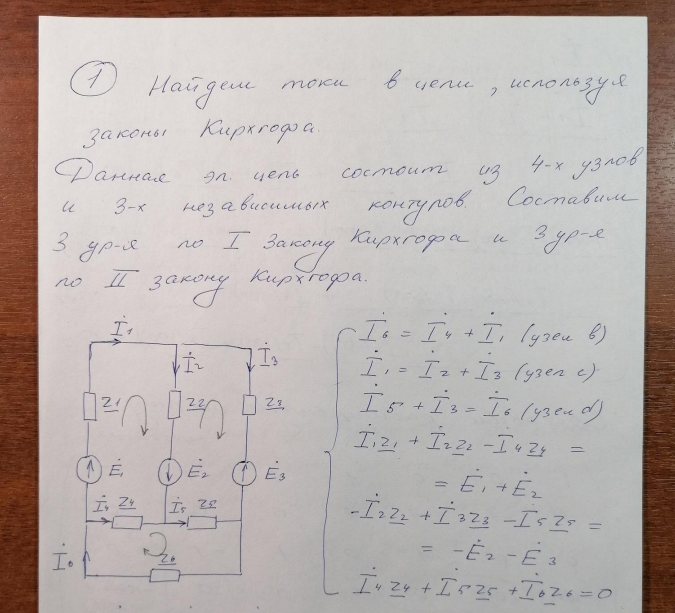 1 Найдем токи в цепи, используя
законы Кирхгофа.
Данная эл. цепь состоит из 4-х узлов
и 3-х независимых контуров. Составим
3 ур-я по I Закону Кирхгофа и 3 ур-я
по II закону Кирхгофа.
İ1
İ2
İ3
Z1
Z2
Z3
Ė1
Ė2
Ė3
İ4
Z4
İ5
Z5
İ6
Z6
İ6 = İ4 + İ1 (узел b)
İ1 = İ2 + İ3 (узел c)
İ5 + İ3 = İ6 (узел d)
İ1Z1 + İ2Z2 - İ4Z4 =
= Ė1 + Ė2
-İ2Z2 + İ3Z3 - İ5Z5 =
= -Ė2 - Ė3
İ4Z4 + İ5Z5 + İ6Z6 = 0